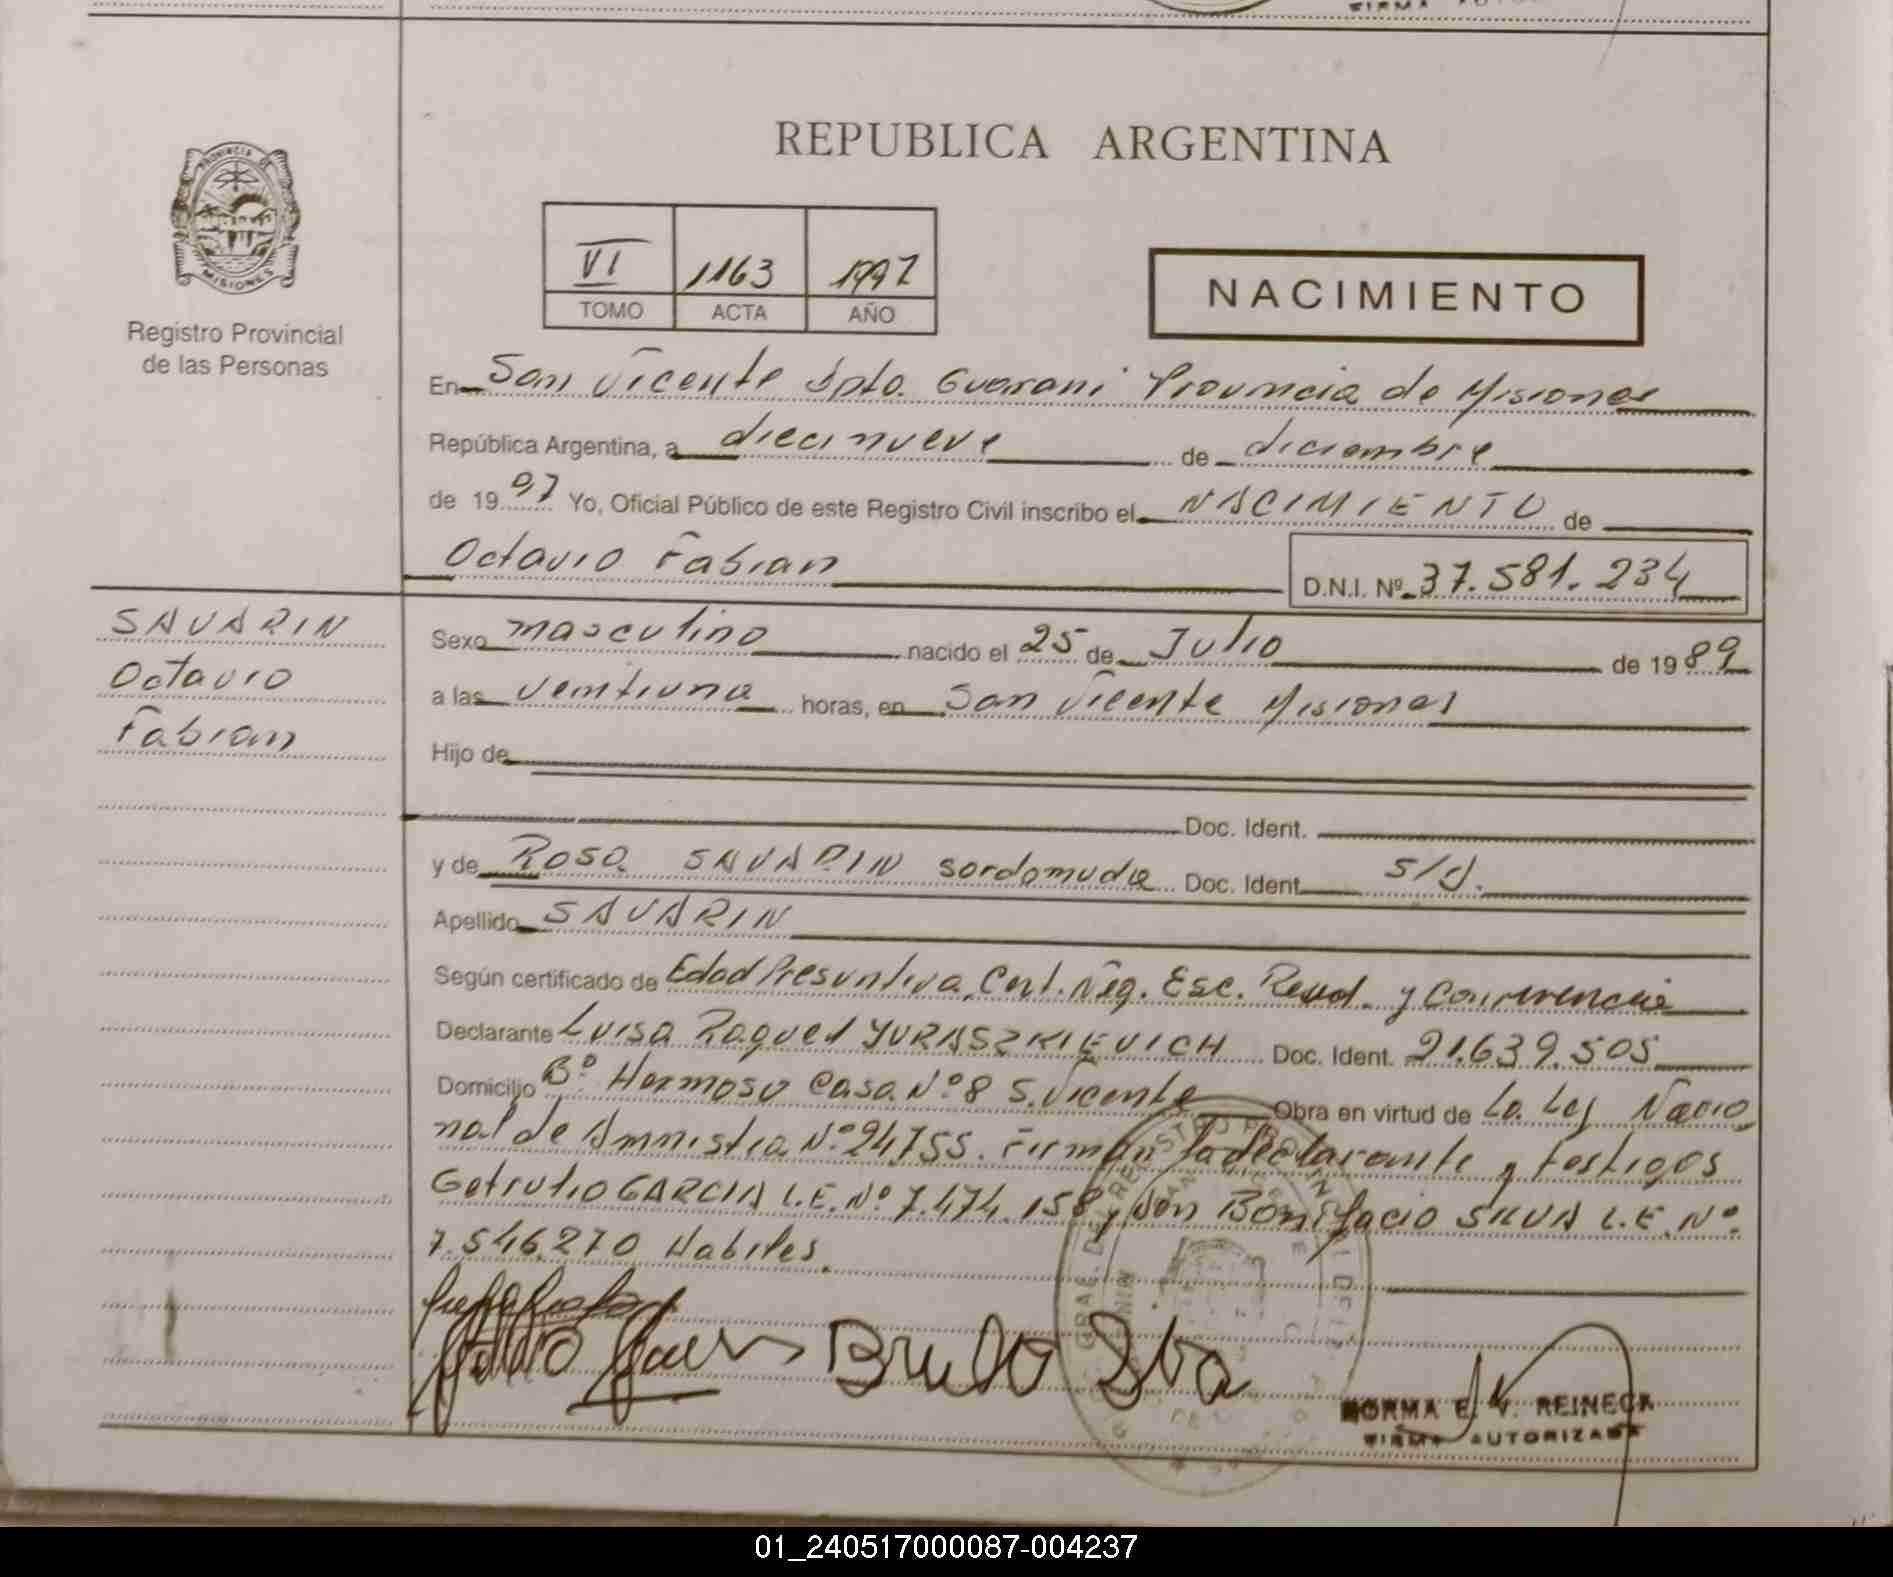 FIRMA AUTO
REPUBLICA ARGENTINA
PROVINCIA DE
MISIONES
Registro Provincial
de las Personas
VI 1163 1997
TOMO ACTA AÑO
NACIMIENTO
En San Vicente Dpto. Guarani Provincia de Misiones
República Argentina, a diecinueve de diciembre
de 1997 Yo, Oficial Público de este Registro Civil inscribo el NACIMIENTO de
Octavio Fabian D.N.I. Nº 37.581.234
SAVARIN
Octavio
Fabian
Sexo masculino nacido el 25 de Julio de 1989
a las veintiuna horas, en San Vicente Misiones
Hijo de
Doc. Ident.
y de Rosa SAVARIN sordomuda Doc. Ident. s/d.
Apellido SAVARIN
Según certificado de Edad Presuntiva, Cert. Neg. Esc. Resid. y Convivencia
Declarante Luisa Raquel YURASZKIEVICH Doc. Ident. 21.639.505
Domicilio Bº Hermoso Casa Nº 8 S. Vicente Obra en virtud de La Ley Nacio
nal de Amnistia Nº 24.755. Firman la declarante y testigos
Getrutio GARCIA L.E. Nº 7.474.158 y don Bonifacio SILVA L.E. Nº
7.546.270 Habiles.
NORMA E. V. REINECK
FIRMA AUTORIZADA
01_240517000087-004237